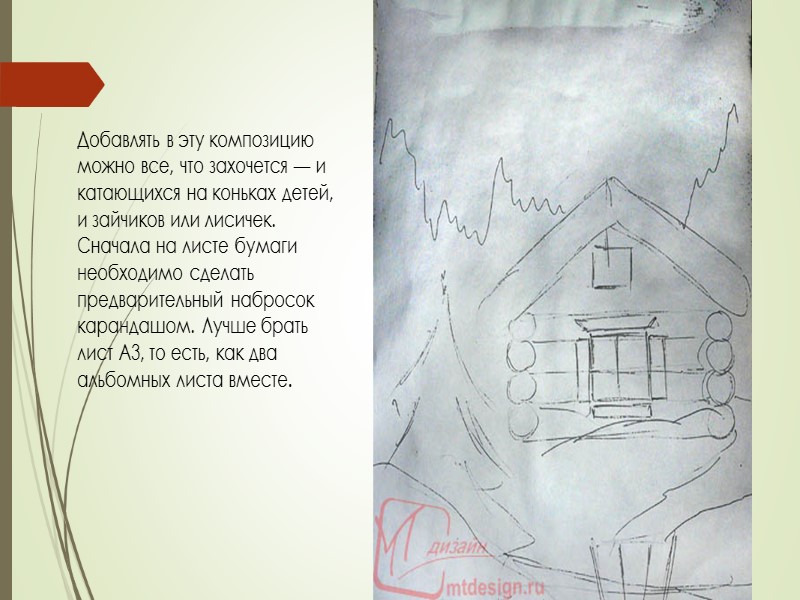 Добавлять в эту композицию
можно все, что захочется — и
катающихся на коньках детей,
и зайчиков или лисичек.
Сначала на листе бумаги
необходимо сделать
предварительный набросок
карандашом. Лучше брать
лист А3, то есть, как два
альбомных листа вместе.
МТ
дизайн
mtdesign.ru